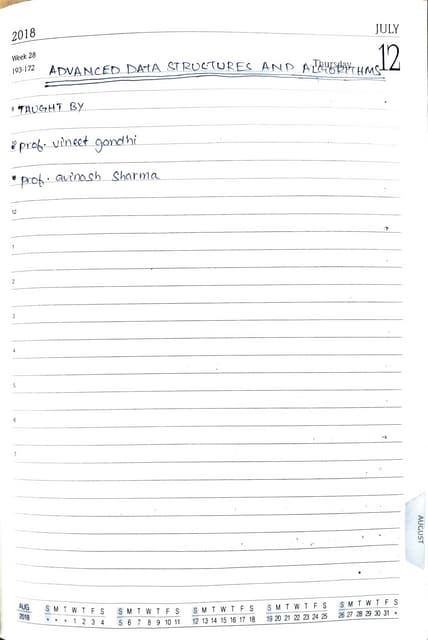 2018 JULY
Week 28
193-172 Thursday 12
ADVANCED DATA STRUCTURES AND ALGORITHMS
TAUGHT BY
prof. vineet gandhi
prof. avinash sharma
12
1
2
3
4
5
6
7
AUGUST
AUG S M T W T F S S M T W T F S S M T W T F S S M T W T F S S M T W T F S
2018 • • • 1 2 3 4 5 6 7 8 9 10 11 12 13 14 15 16 17 18 19 20 21 22 23 24 25 26 27 28 29 30 31 •